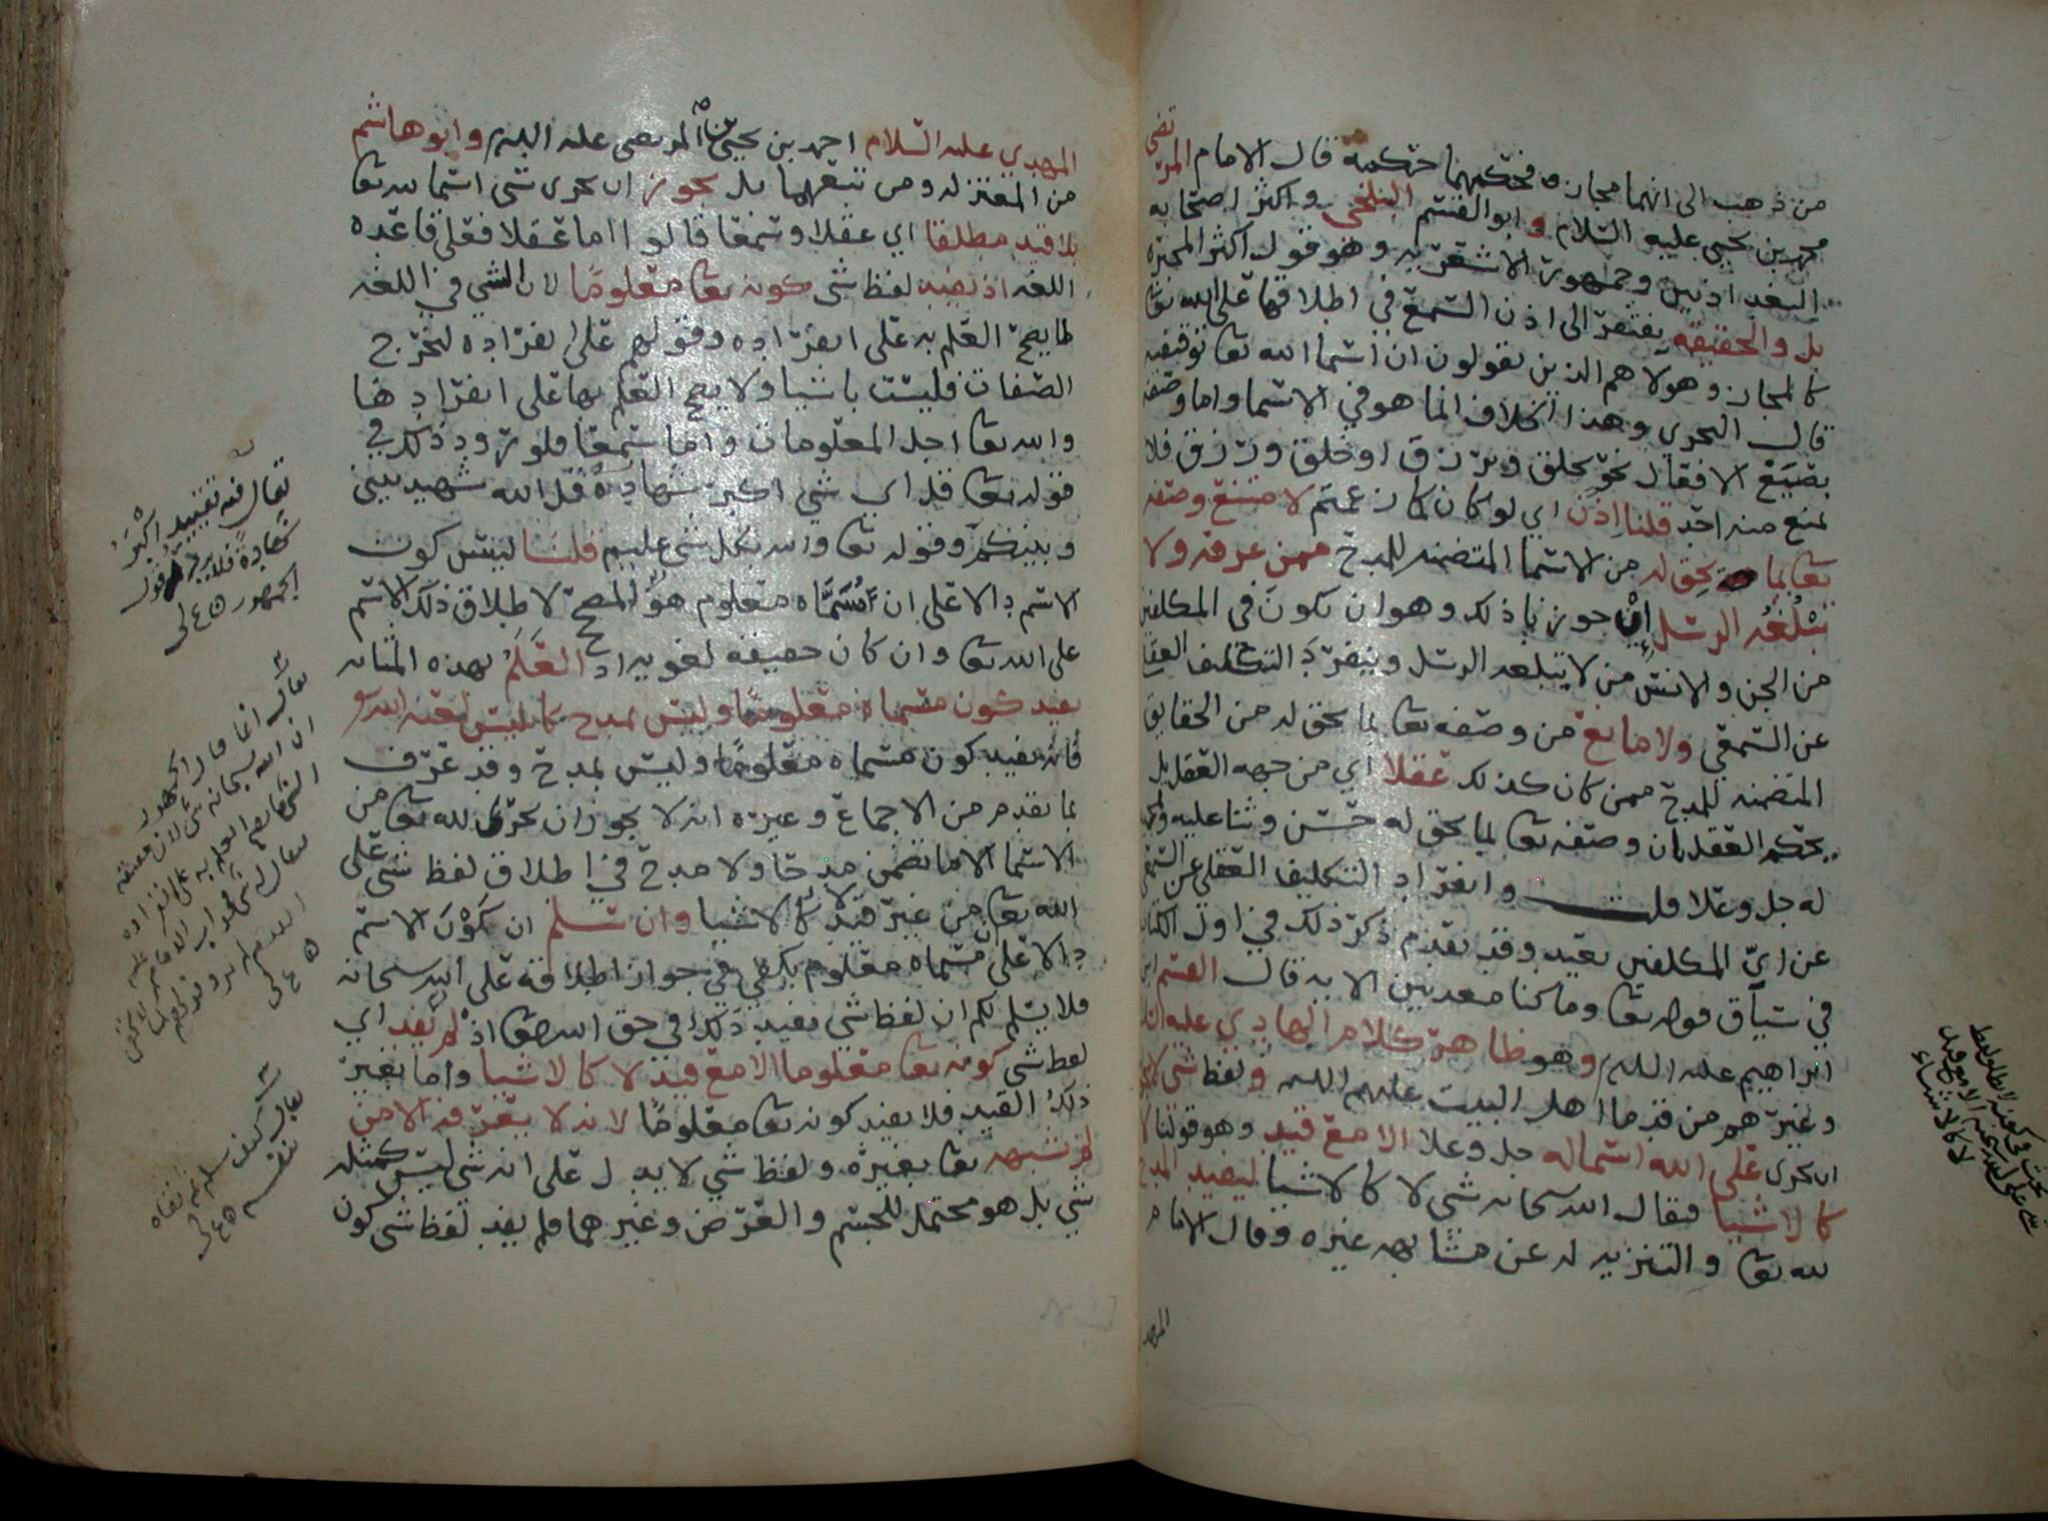 من ذهب الى انهما مجاز فحكمهما حكمه قال الامام المرتضى
محمد بن يحيى عليه السلام وابو القسم البلخي واكثر اصحابه
البغداديين وجمهور الاشعريه وهو قول اكثر المجبرة
بل والحقيقه يفتقر الى اذن السمع في اطلاقها على الله تعا
كالمجاز وهولا هم الذين يقولون ان اسما الله تعا توقيفيه
قال النجري وهذا الخلاف انما هو في الاسما واما وصفه
بصيغ الافعال نحو يخلق ويرزق او خلق ورزق فلا
يمنع منه احد قلنا اذن اي لو كان كما زعمتم لامتنع وصفه
تعا بما يحق له من الاسما المتضمنه للمدح ممن عرفه ولا
تبلغه الرسل اي جوزنا ذلك وهو ان يكون في المكلفين
من الجن والانس من لا يبلغه الرسل وينفرد التكليف العقلي
عن السمعي ولا مانع من وصفه تعا بما يحق له من الحقايق
المتضمنه للمدح ممن كان كذلك عقلا اي من جهه العقل بل
يحكم العقل بان وصفه تعا بما يحق له حسن وثنا عليه
له جل وعلا قلت وانفراد التكليف العقلي عن السمعي
عن اي المكلفين بعيد وقد تقدم ذكر ذلك في اول الكتاب
في سياق قوله تعا وما كنا معذبين الايه قال القسم ابن
ابراهيم عليه السلم وهو ظاهر كلام الهادي عليه السلام
وغيرهم من قدما اهل البيت عليهم السلم ولفظ شي لا يجوز
ان يجرى على الله اسما له جل وعلا الا مع قيد وهو قولنا لا
كالاشيا فيقال الله سبحانه شي لا كالاشيا ليفيد المدح
لله تعا والتنزيه له عن مشابهه غيره وقال الامام
المهدي
بحث في كونه لا يطلق لفظ
شي على الله سبحنه الا مع قيد
لا كالاشياء
المهدي عليه السلام احمد بن يحيى بن المرتضى عليه السلم وابو هاشم
من المعتزله ومن تبعهما بل يجوز ان يجرى شي اسما لله تعا
بلا قيد مطلقا اي عقلا وسمعا قالوا اما عقلا فعلى قاعده
اللغه اذ يفيد لفظ شي كونه تعا معلوما لان الشي في اللغه
لما يصح العلم به على انفراده وقولهم على انفراده لتخرج
الصفات فليست باشيا ولا يصح العلم بها على انفرادها
والله تعا اجل المعلومات واما سمعا فلورود ذلك في
قوله تعا قل اي شي اكبر شهادة قل الله شهيد بيني
وبينكم وقوله تعا والله بكل شي عليم قلنا ليس كون
الاسم دالا على ان مسماه معلوم هو المصحح لاطلاق ذلك الاسم
على الله تعا وان كان حقيقه لغويه اذ العلم بهذه المثابه
يفيد كون مسماه معلوما وليس بمدح كما ليس
فانه يفيد كون مسماه معلوما وليس بمدح وقد عرف
بما تقدم من الاجماع وغيره انه لا يجوز ان يجرى لله تعا من
الاسما الا ما تضمن مدحا ولا مدح في اطلاق لفظ شي على
الله تعا من غير قيد لا كالاشيا وان سلم ان كون الاسم
دالا على ان مسماه معلوم يكفي في جواز اطلاقه على الله سبحانه
فلا يسلم لكم ان لفظ شي يفيد ذلك في حق الله تعا اذ لم يفد اي
لفظ شي كونه تعا معلوما الا مع قيد لا كالاشيا واما بغير
ذلك القيد فلا يفيد كونه تعا معلوما لانه لا يعرفه الا من
لم يشبهه تعا بغيره ولفظ شي لا يدل على انه شي ليس كمثله
شي بل هو محتمل للجسم والعرض وغيرهما فلم يفد لفظ شي كون
يقال فيه تقييد اكبر
شهادة فلا يرد قول
الجمهور
يقال انما قال الجمهور
ان الله سبحانه شي لان حقيقه
الشي ما يصح العلم به على انفراده
يقال كيف
نفسه